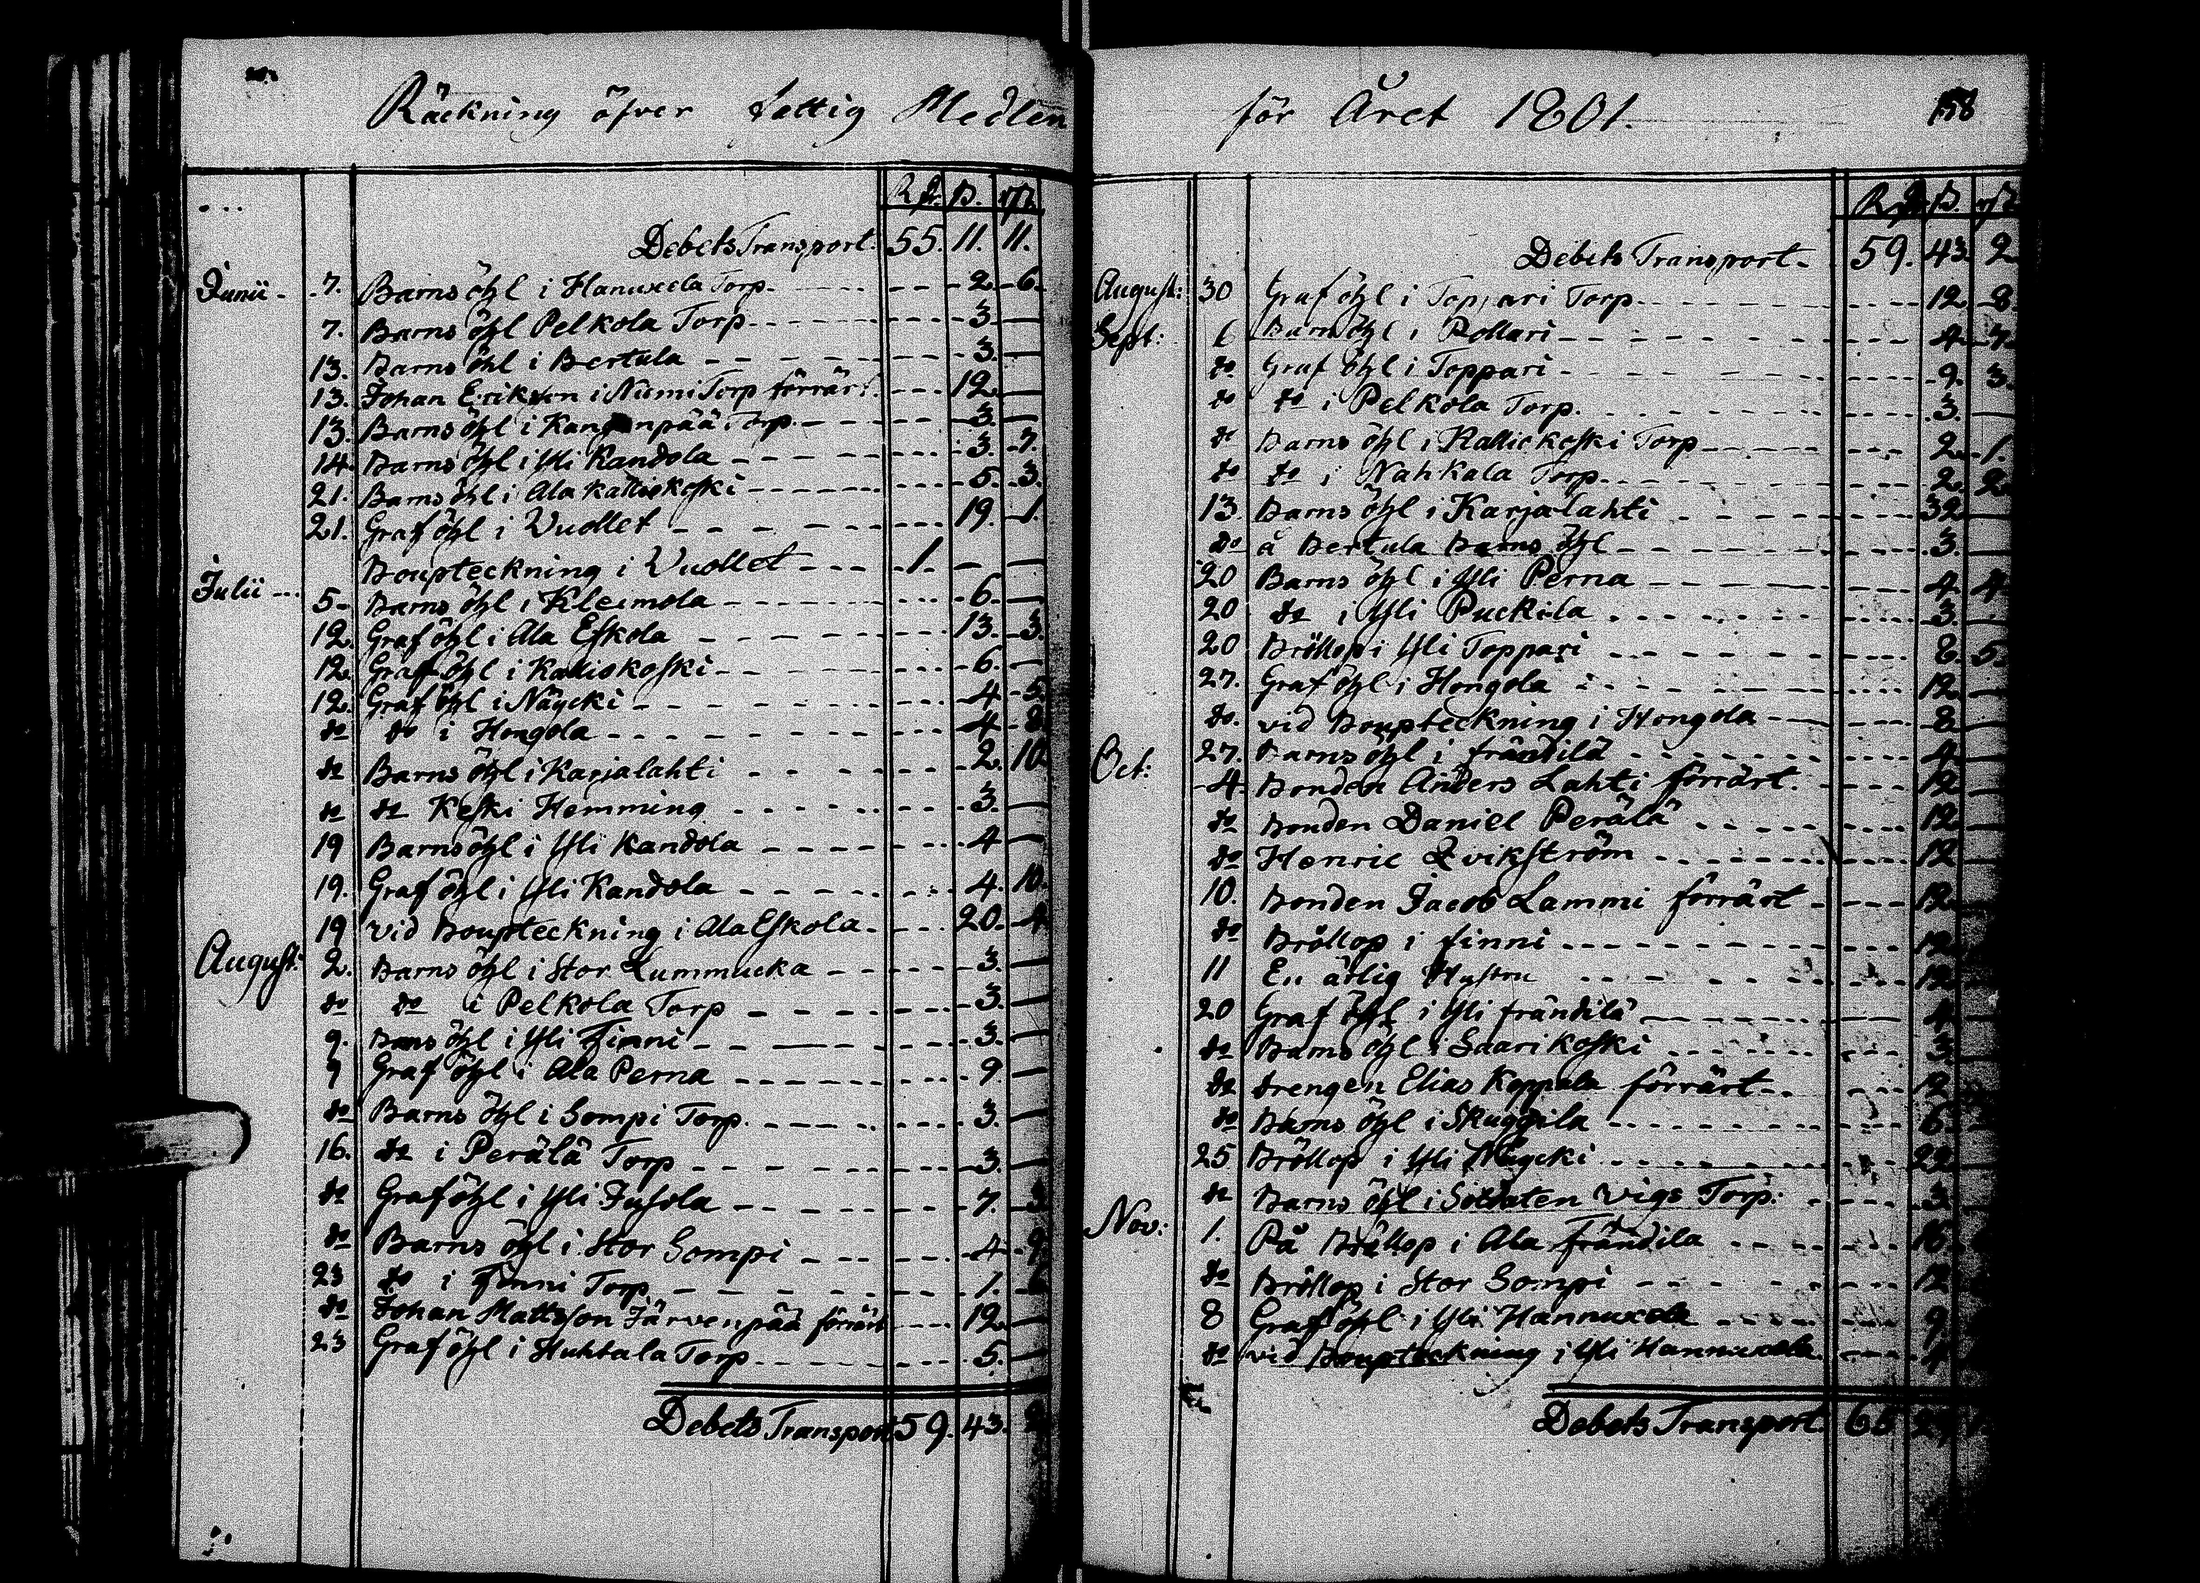 Räckning öfver fattig Medlen
Debets Transport. 55. 11. 11.
Junii - 7. Barns öhl i Hanuxela Torp. 2. 6.
7. Barns öhl Pelkola Torp 3. —
13. Barns öhl i Bertula 3. —
13. Johan Eriksson i Niemi Torp förrärt. 12. —
13. Barns öhl i Kanganpää Torp. 3. —
14. Barns öhl i Yli Kandola 3. 7.
21. Barns öhl i Ala Kalliokoski 5. 3.
21. Graf öhl i Vuollet 19. 1.
Boupteckning i Vuollet 1. — —
Julii 5. Barns öhl i Kleimola 6. —
12. Graf öhl i Ala Eskola 13. 3.
12. Graf öhl i Kalliokoski 6. —
12. Graf öhl i Näycki 4 5
do do i Hongola 4 8
do Barns öhl i Karjalahti 2. 10
do do Keski Hemming 3. —
19 Barns öhl i Yli Kandola 4 —
19. Graf öhl i Yli Kandola 4. 10.
19 vid Boupteckning i Ala Eskola 20. 4
August: 2. Barns öhl i Stor Lummucka 3. —
do do i Pelkola Torp 3. —
9. Barns öhl i Yli Finni 3. —
9 Graf öhl i Ala Perna 9. —
do Barns öhl i Sompi Torp. 3. —
16. do i Perälä Torp 3. —
do Graf öhl i Yli Jusola 7. 3
do Barns öhl i Stor Sompi 4 9.
23 do i Finni Torp 1. 6
do Johan Mattsson Järvenpää förrärt 12. —
23 Graf öhl i Huhtala Torp 5. —
Debets Transport 59. 43. 2
för Året 1801. 158
Debets Transport 59. 43. 2
August: 30 Graf öhl i Toppari Torp 12. 8.
Sept: 6 Barns öhl i Pollari 4. 7.
do Graf öhl i Toppari 9. 3.
do do i Pelkola Torp. 3. —
do Barns öhl i Kalliokoski Torp 2. 1.
do do i Nahkala Torp 2. 2
13. Barns öhl i Karjalahti 32 —
do å Bertula Barns öhl 3. —
20 Barns öhl i Yli Perna 4 4
20 do i Yli Puckila 3.
20 Bröllop i Yli Toppari 8. 5.
27. Graf öhl i Hongola 12. —
do. vid Boupteckning i Hongola 8 —
27. Barns öhl i Frändilä 4 —
Oct: 4. Bonden Anders Lahti förrärt. 12
do Bonden Daniel Perälä 12
do Henric Qvikström 12
10. Bonden Jacob Lammi förrärt 12
do Bröllop i Finni 12
11 En ärlig Hustru 12
20 Graf öhl i Yli Frändilä 4
do Barns öhl i Saarikoski 3
do Drengen Elias Koppala förrärt 12
do Barns öhl i Skuggila 6
25 Bröllop i Yli Näycki 22
do Barns öhl i Soldaten Vigs Torp. 3
Nov: 1. På Bröllop i Ala Frändila 16
do Bröllop i Stor Sompi 12
8 Graf öhl i Yli Hannuxela 9
do vid Boupteckning i Yli Hannuxela
Debets Transport